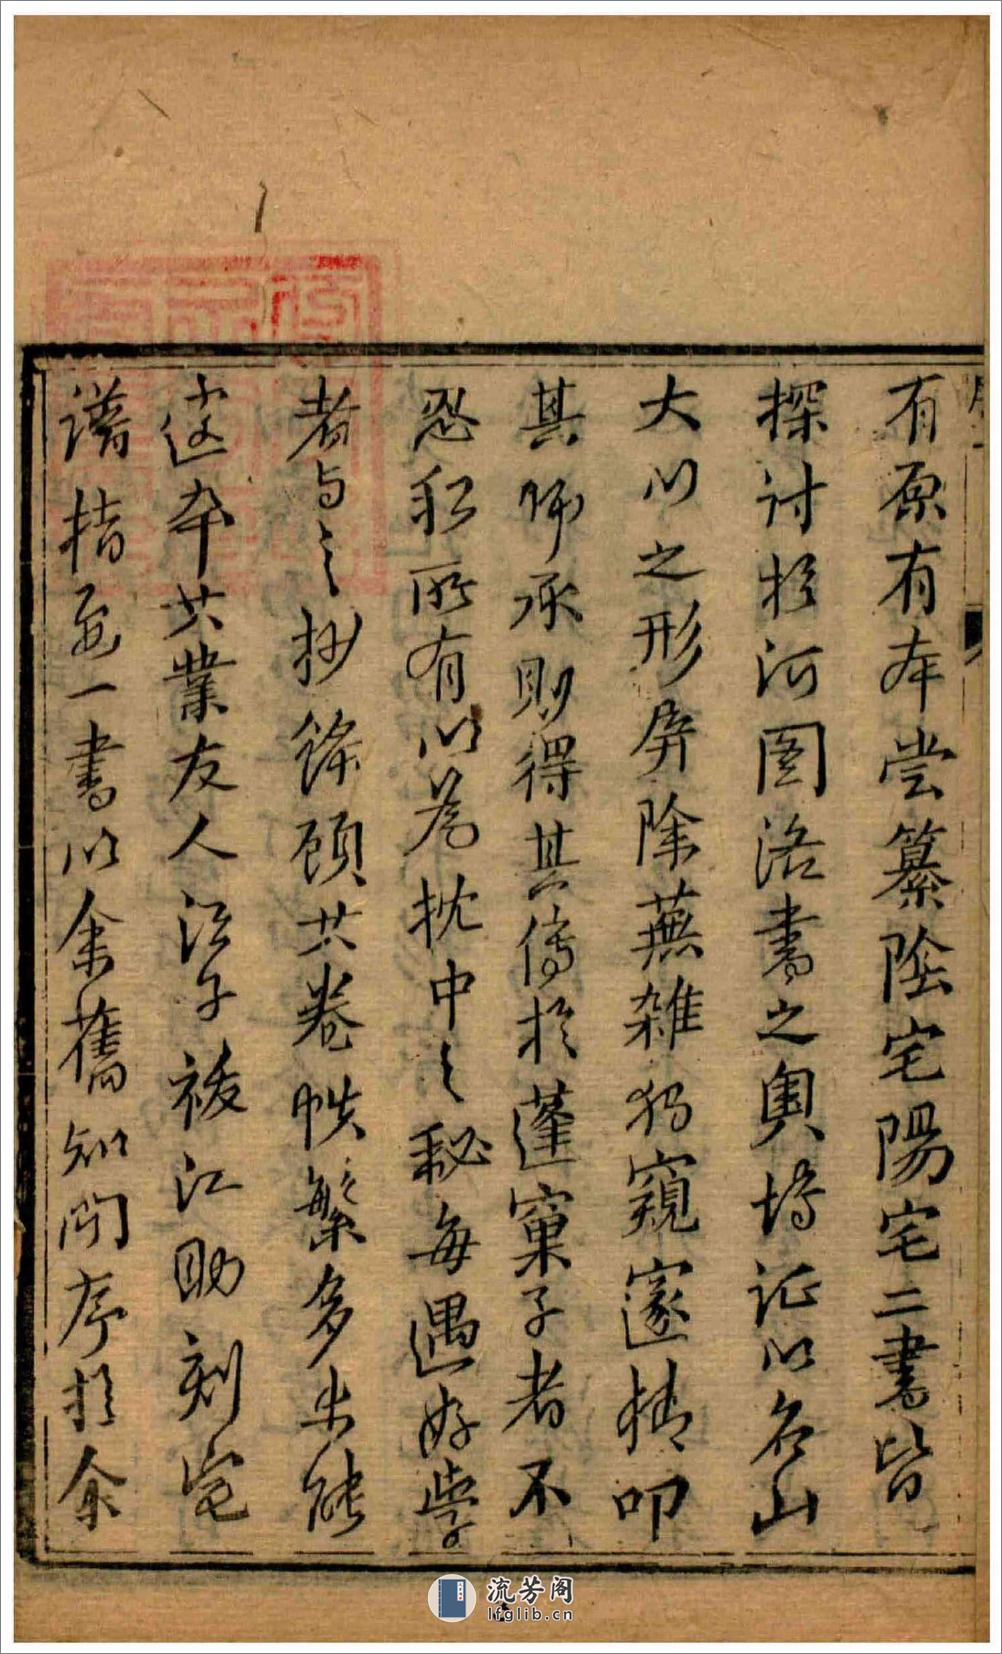 有原有本嘗纂陰宅陽宅二書皆
探討於河图洛書之奧博证以名山
大川之形屏除蕪雜独窺邃精叩
其师承則得其傳於蓬窠子者不
忍私所有以为枕中之秘每遇好学
者与之抄錄顾其卷帙繁多未能
遽本其業友人江子祓江助刻宅
譜指要一書以余舊知问序於余
流芳阁
lfglib.cn